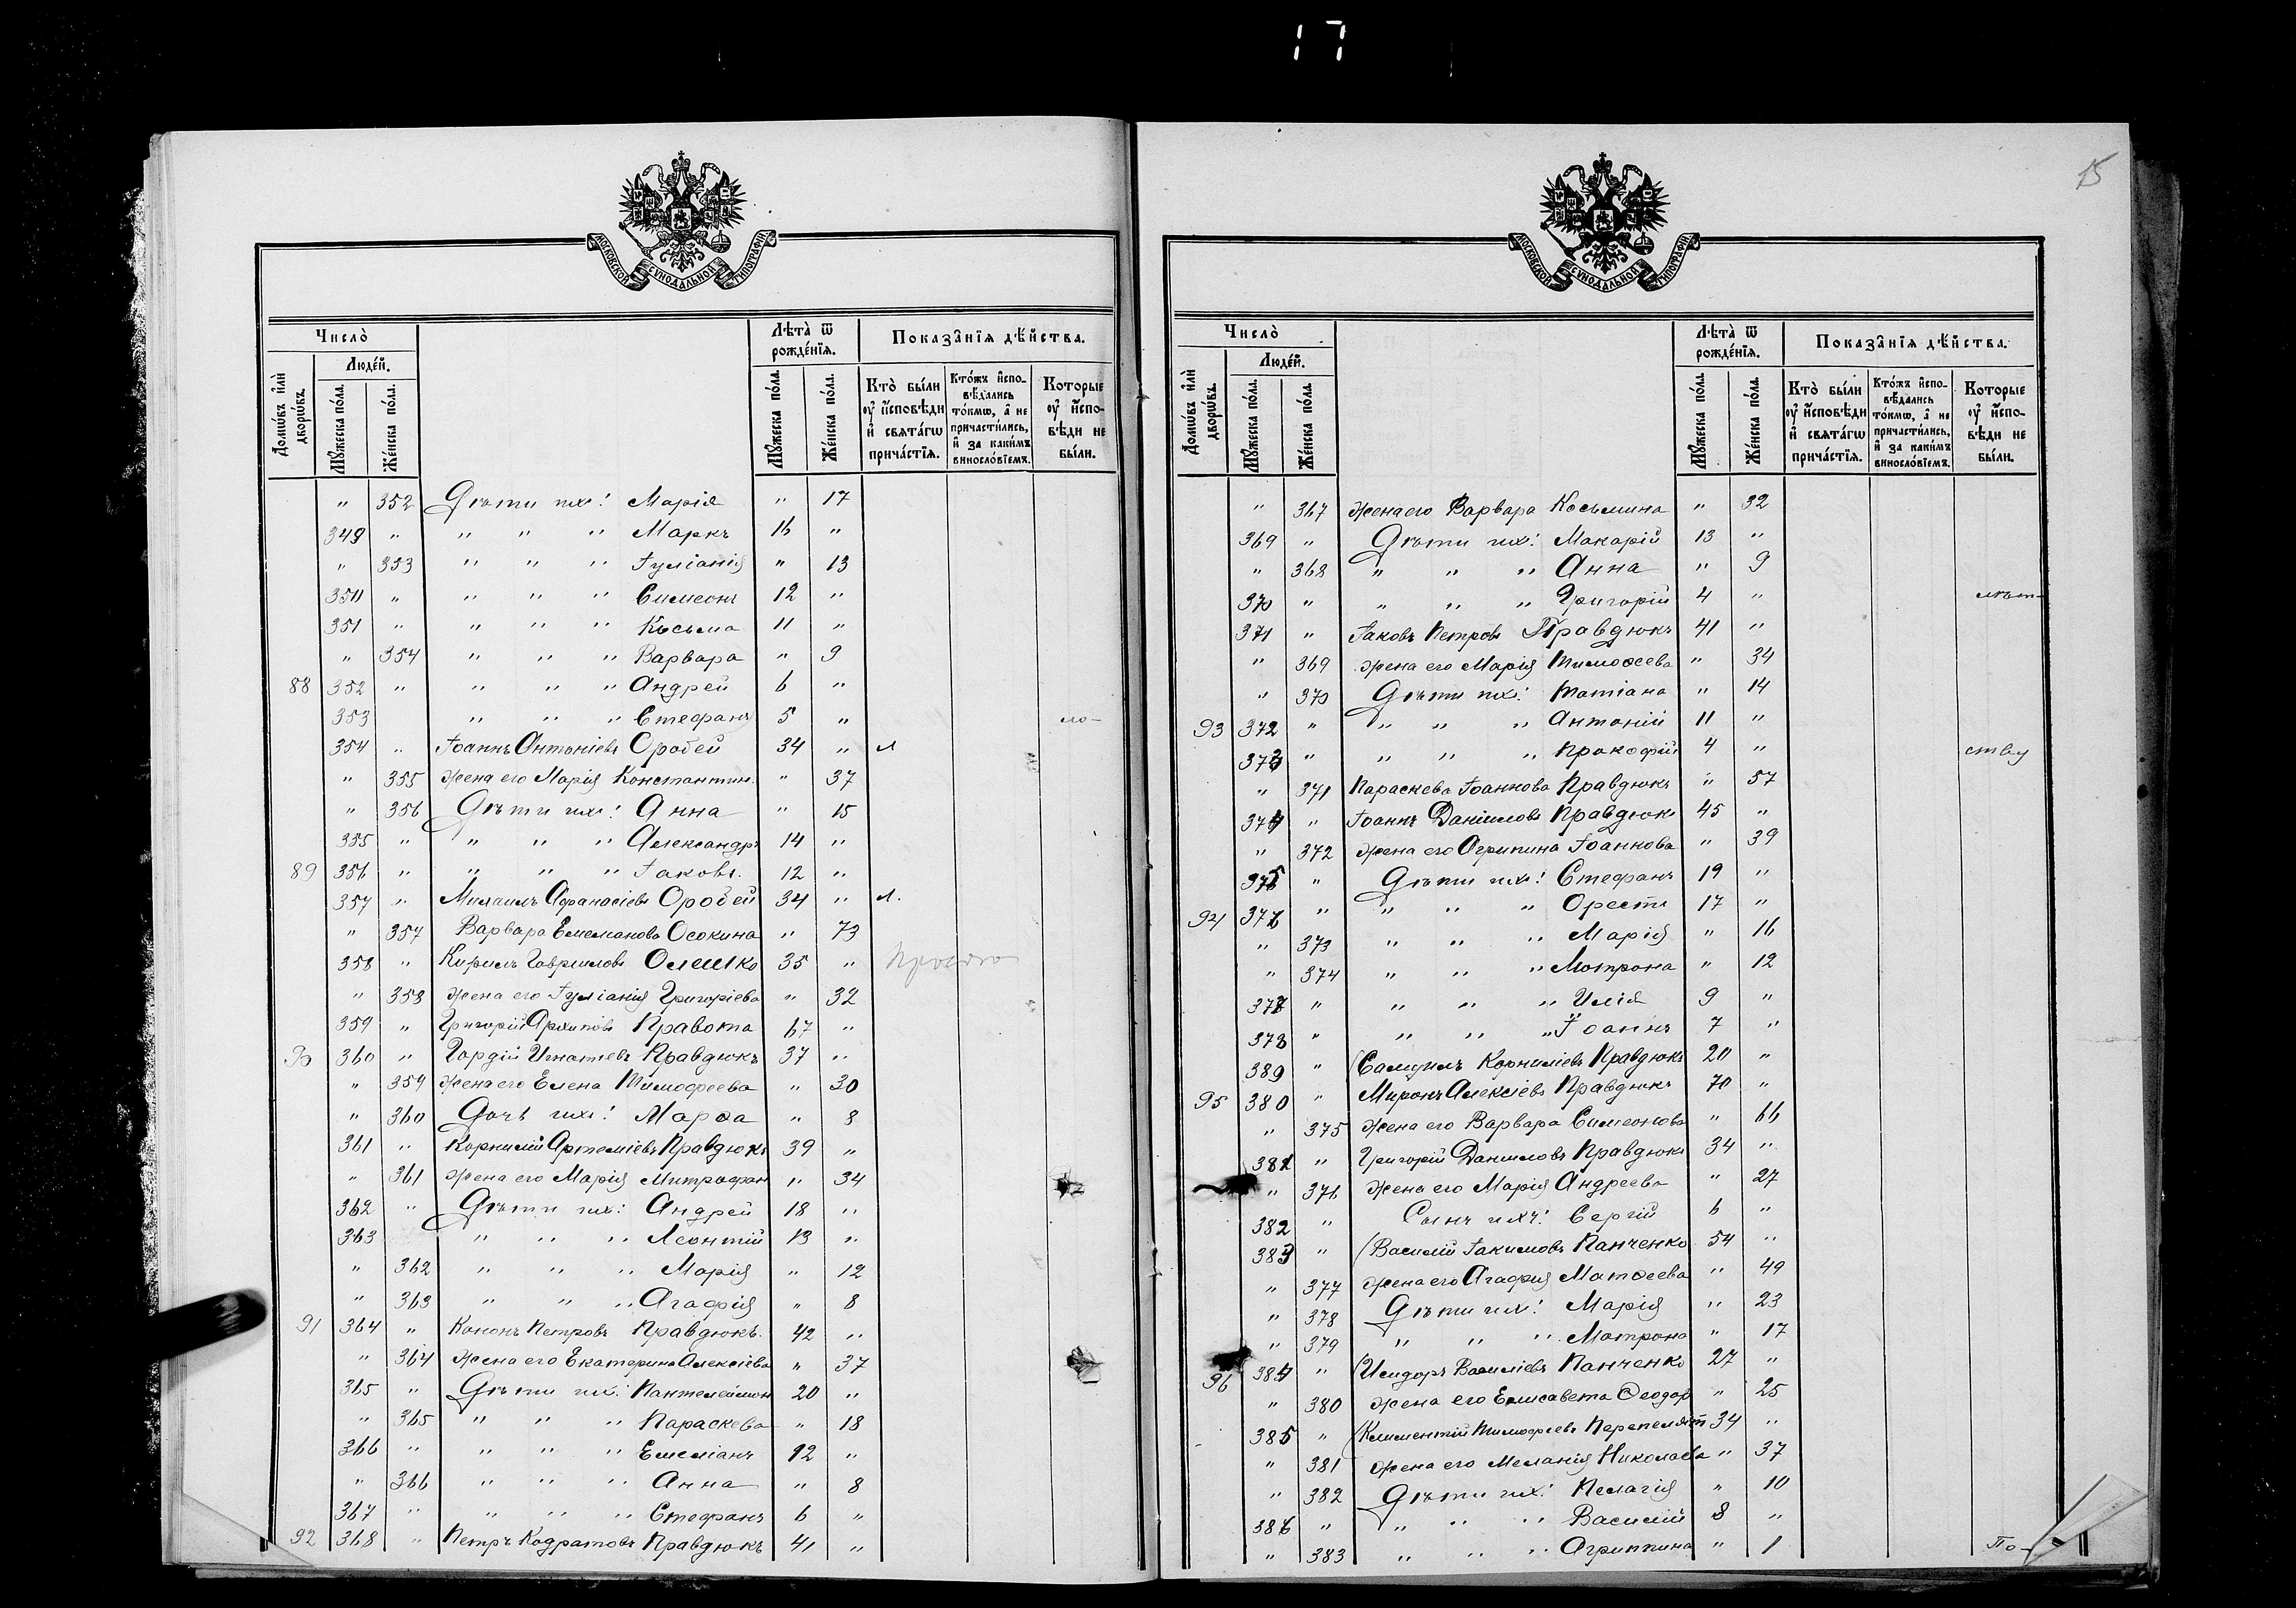 17
МОСКОВСКОЙ СѴНОДАЛЬНОЙ ТИПОГРАФІИ
Число̀
Людéй.
Домѡ́въ и҆лѝ дворѡ́въ.
Мꙋ́жеска пóла.
Жéнска пóла.
Лѣ́та̀ ѿ рождéнїѧ.
Мꙋ́жеска пóла.
Жéнска пóла.
Показа̑нїѧ дѣ́йства.
Кто̀ бы́ли ᲂу҆ и҆́сповѣди и҆ свѧта́гѡ прича́стїѧ.
Кто́жъ и҆спо-вѣ́дались то́кмѡ, а҆ не причасти́лись, и҆ за каки́мъ винослóвїемъ.
Которые ᲂу҆ и҆́спо-вѣди не бы́ли.
" 352 Дѣти ихъ: Марія " 17
349 " " " " Маркъ 16 "
" 353 " " " Іуліанія " 13
350 " " " " Симеонъ 12 "
351 " " " " Косьма 11 "
" 354 " " " Варвара " 9
88 352 " " " " Андрей 6 "
353 " " " Стефанъ 5 " ло-
354 " Іоаннъ Антоніевъ Оробей 34 " л
" 355 Жена его Марія Константин. " 37
" 356 Дѣти ихъ: Анна " 15
355 " " " " Александръ 14 "
89 356 " " " " Іаковъ. 12 "
357 " Михаилъ Афанасіевъ Оробей 34 " л.
" 357 Варвара Емельянова Осокина " 73
358 " Кирилъ Гавриловъ Олешко 35 "
" 358 Жена его Іуліанія Григоріева " 32
359 " Григорій Архиповъ Правота 67 "
90 360 " Гордій Игнатіевъ Правдюкъ 37 "
" 359 Жена его Елена Тимофеева " 30
" 360 Дочь ихъ: Марѳа " 8
361 " Корнилій Артеміевъ Правдюкъ 39 "
" 361 Жена его Марія Митрофан " 34
362 " Дѣти ихъ: Андрей 18 "
363 " " " Леонтій 13 "
" 362 " " " Марія " 12
" 363 " " " Агафія " 8
91 364 " Кононъ Петровъ Правдюкъ. 42 "
" 364 Жена его Екатерина Алексіева " 37
365 " Дѣти ихъ: Пантелеймон 20 "
" 365 " " " Параскева " 18
366 " " " " Емеліанъ 12 "
" 366 " " " Анна " 8
367 " " " " Стефанъ 6 "
92 368 " Петръ Кодратовъ Правдюкъ 41 "
15
МОСКОВСКОЙ СѴНОДАЛЬНОЙ ТИПОГРАФІИ
Число̀
Людéй.
Домѡ́въ и҆лѝ дворѡ́въ.
Мꙋ́жеска пóла.
Жéнска пóла.
Лѣ́та̀ ѿ рождéнїѧ.
Мꙋ́жеска пóла.
Жéнска пóла.
Показа̑нїѧ дѣ́йства.
Кто̀ бы́ли ᲂу҆ и҆́сповѣди и҆ свѧта́гѡ прича́стїѧ.
Кто́жъ и҆спо-вѣ́дались то́кмѡ, а҆ не причасти́лись, и҆ за каки́мъ винослóвїемъ.
Которые ᲂу҆ и҆́спо-вѣди не бы́ли.
" 367 Жена его Варвара Косьмина " 32
369 " Дѣти ихъ: Макарій 13 "
" 368 " " " Анна " 9
370 " " " " Григорій 4 " лѣт-
371 " Іаковъ Петровъ Правдюкъ 41 "
" 369 Жена его Марія Тимоѳеева " 34
" 370 Дѣти ихъ: Татіана " 14
93 372 " " " " Антоній 11 "
373 " " " " Прокофій 4 " ству
" 371 Параскева Іоаннова Правдюкъ " 57
374 " Іоаннъ Даніиловъ Правдюкъ 45 "
" 372 Жена его Агрипина Іоаннова " 39
375 " Дѣти ихъ: Стефанъ 19 "
94 376 " " " " Орестъ 17 "
" 373 " " " Марія " 16
" 374 " " " Мотрона " 12
377 " " " " Илія 9 "
378 " " " " Іоаннъ 7 "
389 " Самуилъ Корниліевъ Правдюкъ 20 "
95 380 " Миронъ Алексіевъ Правдюкъ 70 "
" 375 Жена его Варвара Симеонова " 66
381 " Григорій Даниловъ Правдюкъ 34 "
" 376 Жена его Марія Андреева " 27
382 " Сынъ ихъ: Сергій 6 "
383 " Василій Іакимовъ Панченко 54 "
" 377 Жена его Агафія Матѳеева " 49
" 378 Дѣти ихъ: Марія " 23
" 379 " " " Мотрона " 17
96 384 " Исидоръ Василіевъ Панченко 27 "
" 380 Жена его Елисавета Ѳеодор " 25
385 " Климентій Тимофеевъ 34 "
" 381 Жена его Меланія Николаева " 37
" 382 Дѣти ихъ: Пелагія " 10
386 " " " " Василій 8 "
" 383 " " " Агриппина " 1 По-